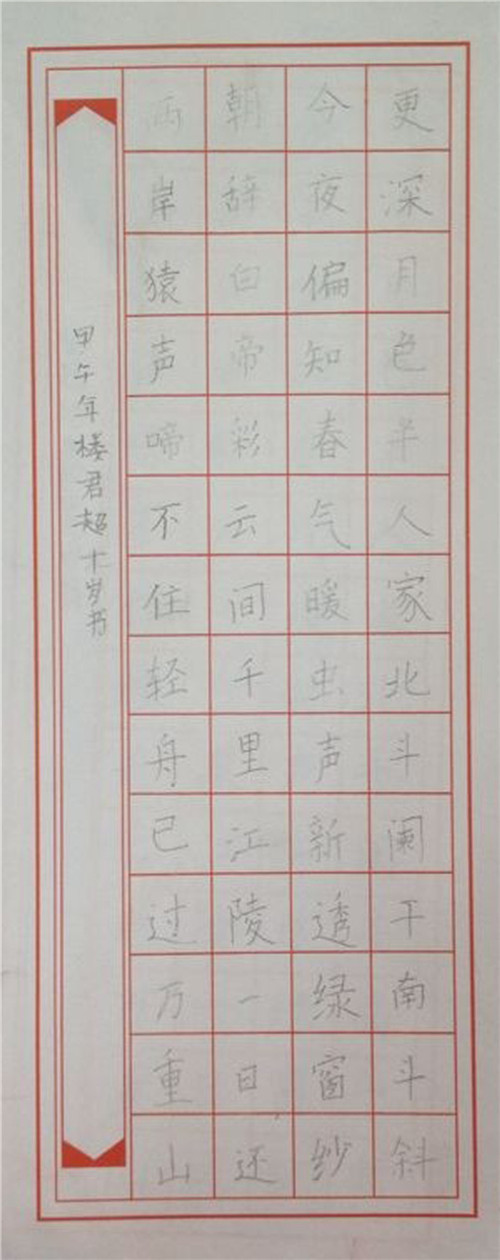 更深月色半人家北斗阑干南斗斜
今夜偏知春气暖虫声新透绿窗纱
朝辞白帝彩云间千里江陵一日还
两岸猿声啼不住轻舟已过万重山
甲午年楼君超十岁书